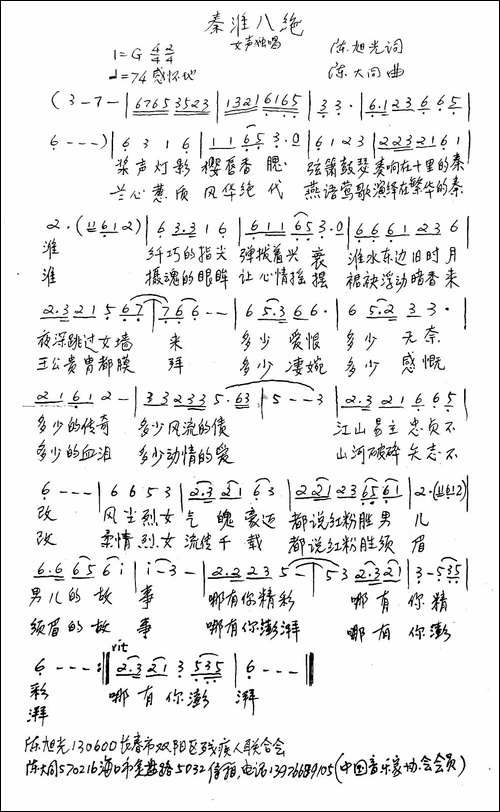 秦淮八绝
女声独唱
1=G 4/4 2/4
♩=74 感怀地
陈旭光词
陈大同曲
(3-7-|67653523|13216165|33·|6·12366 5|
6---)|6316|1165 3·0|6123|2232161|
桨声灯影 樱唇香腮 弦箫鼓琴奏响在十里的秦
兰心蕙质 风华绝代 燕语莺歌演绎在繁华的秦
2·(11612)|63·316|61165 3·0|6661236|
淮 纤巧的指尖 弹拨着兴衰 淮水东边旧时月
淮 摄魂的眼眸 让心情摇摆 裙袂浮动暗香来
2·321567|766--|65·366·|65·233·|
夜深跳过女墙 来 多少爱恨 多少无奈
王公贵胄都膜 拜 多少凄婉 多少感慨
21612-|332335·63|5--3|2·321665|
多少的传奇 多少风流的债 江山易主忠贞不
多少的血泪 多少动情的爱 山河破碎矢志不
6---|6653|2·32163|221236561|2·(11612)|
改 风尘烈女气魄豪迈 都说红粉胜男 儿
改 柔情烈女流传千载 都说红粉胜须 眉
6·6656i|i-3-|2·2235-|532321|3-535|
男儿的故 事 哪有你精彩 哪有你精
须眉的故 事 哪有你澎湃 哪有你澎
rit
6---:‖2·3213535|6---‖
彩 哪有你澎 湃
湃
陈旭光130600长春市双阳区残疾人联合会
陈大同570216海口市金盘路5032信箱,电话13976689105(中国音乐家协会会员)